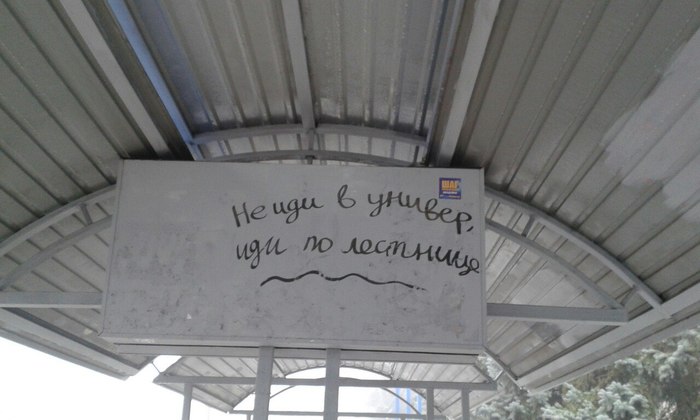 ШАГ
Не иди в универ,
иди по лестнице